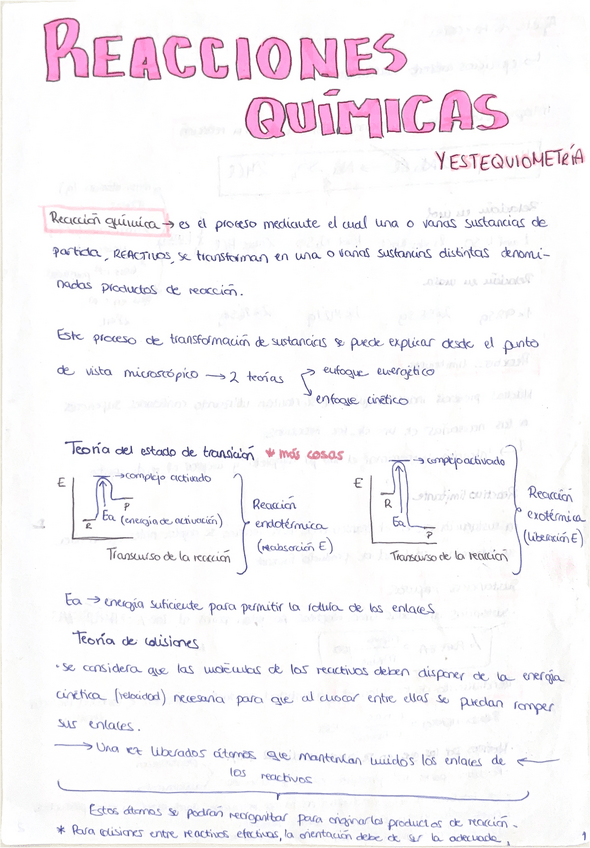 REACCIONES
QUÍMICAS
Y ESTEQUIOMETRÍA
Reacción química → es el proceso mediante el cual una o varias sustancias de
partida, REACTIVOS, se transforman en una o varias sustancias distintas denomi-
nadas productos de reacción.
Este proceso de transformación de sustancias se puede explicar desde el punto
de vista microscópico → 2 teorías → enfoque energético
→ enfoque cinético
Teoría del estado de transición * más cosas
E → complejo activado
R Ea (energía de activación) P
Transcurso de la reacción
Reacción
endotérmica
(absorción E)
E → complejo activado
R Ea P
Transcurso de la reacción
Reacción
exotérmica
(liberación E)
Ea → energía suficiente para permitir la rotula de los enlaces
Teoría de colisiones
· Se considera que las moléculas de los reactivos deben disponer de la energía
cinética (velocidad) necesaria para que al chocar entre ellas se puedan romper
sus enlaces.
→ Una vez liberados átomos que mantenían unidos los enlaces de ←
los reactivos
Estos átomos se podrán reorganizar para originar los productos de reacción.
* Para colisiones entre reactivos efectivas, la orientación debe de ser la adecuada.
1